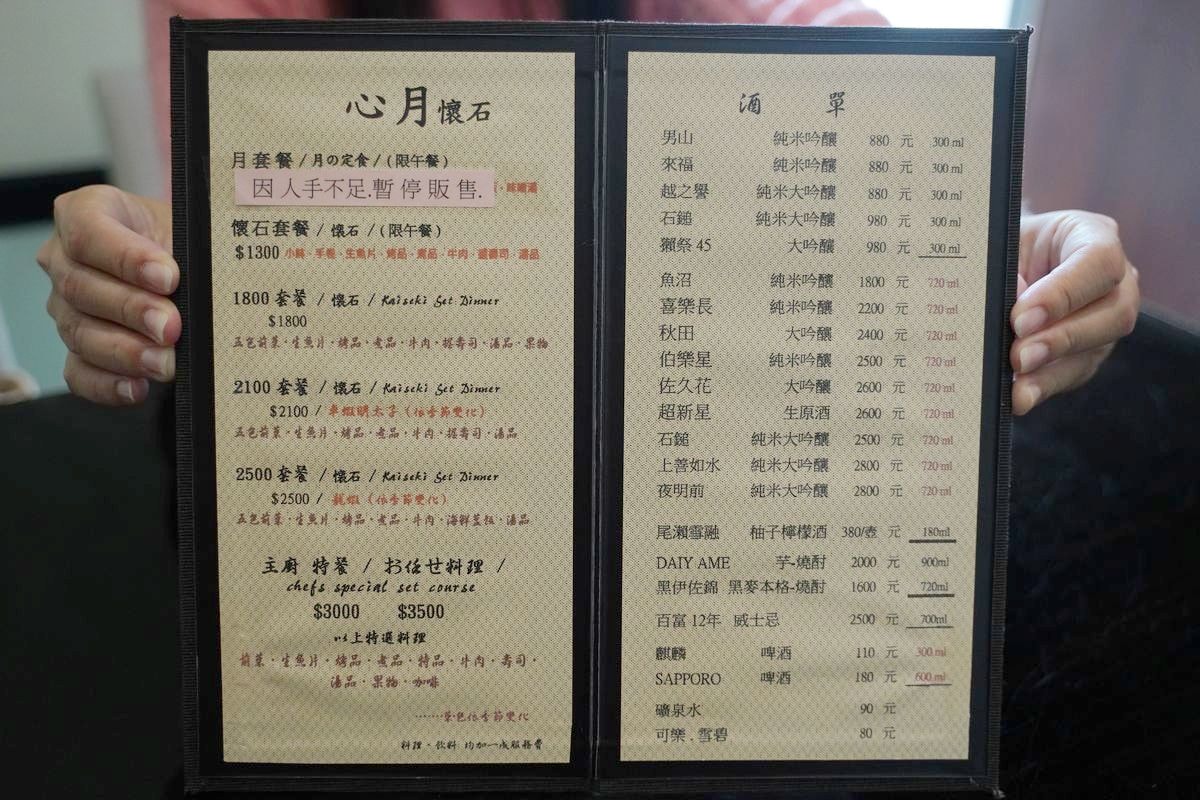 心月懷石
月套餐 / 月の定食 / (限午餐)
因人手不足.暫停販售.
·味噌湯
懷石套餐 / 懷石 / (限午餐)
$1300 小缽·手卷·生魚片·烤品·煮品·牛肉·握壽司·湯品
1800 套餐 / 懷石 / Kaiseki Set Dinner
$1800
五色前菜·生魚片·烤品·煮品·牛肉·握壽司·湯品·果物
2100 套餐 / 懷石 / Kaiseki Set Dinner
$2100 / 車蝦明太子 (依季節變化)
五色前菜·生魚片·烤品·煮品·牛肉·握壽司·湯品
2500 套餐 / 懷石 / Kaiseki Set Dinner
$2500 / 龍蝦 (依季節變化)
五色前菜·生魚片·烤品·煮品·牛肉·海鮮釜飯·湯品
主廚 特餐 / お任せ料理 /
chefs special set course
$3000 $3500
以上特選料理
前菜·生魚片·烤品·煮品·特品·牛肉·壽司·
湯品·果物·咖啡
······菜色依季節變化
料理·飲料 均加一成服務費
酒 單
男山 純米吟釀 880 元 300 ml
來福 純米吟釀 880 元 300 ml
越之譽 純米大吟釀 880 元 300 ml
石鎚 純米大吟釀 980 元 300 ml
獺祭 45 大吟釀 980 元 300 ml
魚沼 純米吟釀 1800 元 720 ml
喜樂長 純米吟釀 2200 元 720 ml
秋田 大吟釀 2400 元 720 ml
伯樂星 純米吟釀 2500 元 720 ml
佐久花 大吟釀 2600 元 720 ml
超新星 生原酒 2600 元 720 ml
石鎚 純米大吟釀 2500 元 720 ml
上善如水 純米大吟釀 2800 元 720 ml
夜明前 純米大吟釀 2800 元 720 ml
尾瀨雪融 柚子檸檬酒 380/壺 元 180ml
DAIY AME 芋-燒酎 2000 元 900ml
黑伊佐錦 黑麥本格-燒酎 1600 元 720ml
百富 12年 威士忌 2500 元 700ml
麒麟 啤酒 110 元 300 ml
SAPPORO 啤酒 180 元 600 ml
礦泉水 90 元
可樂 . 雪碧 80 元